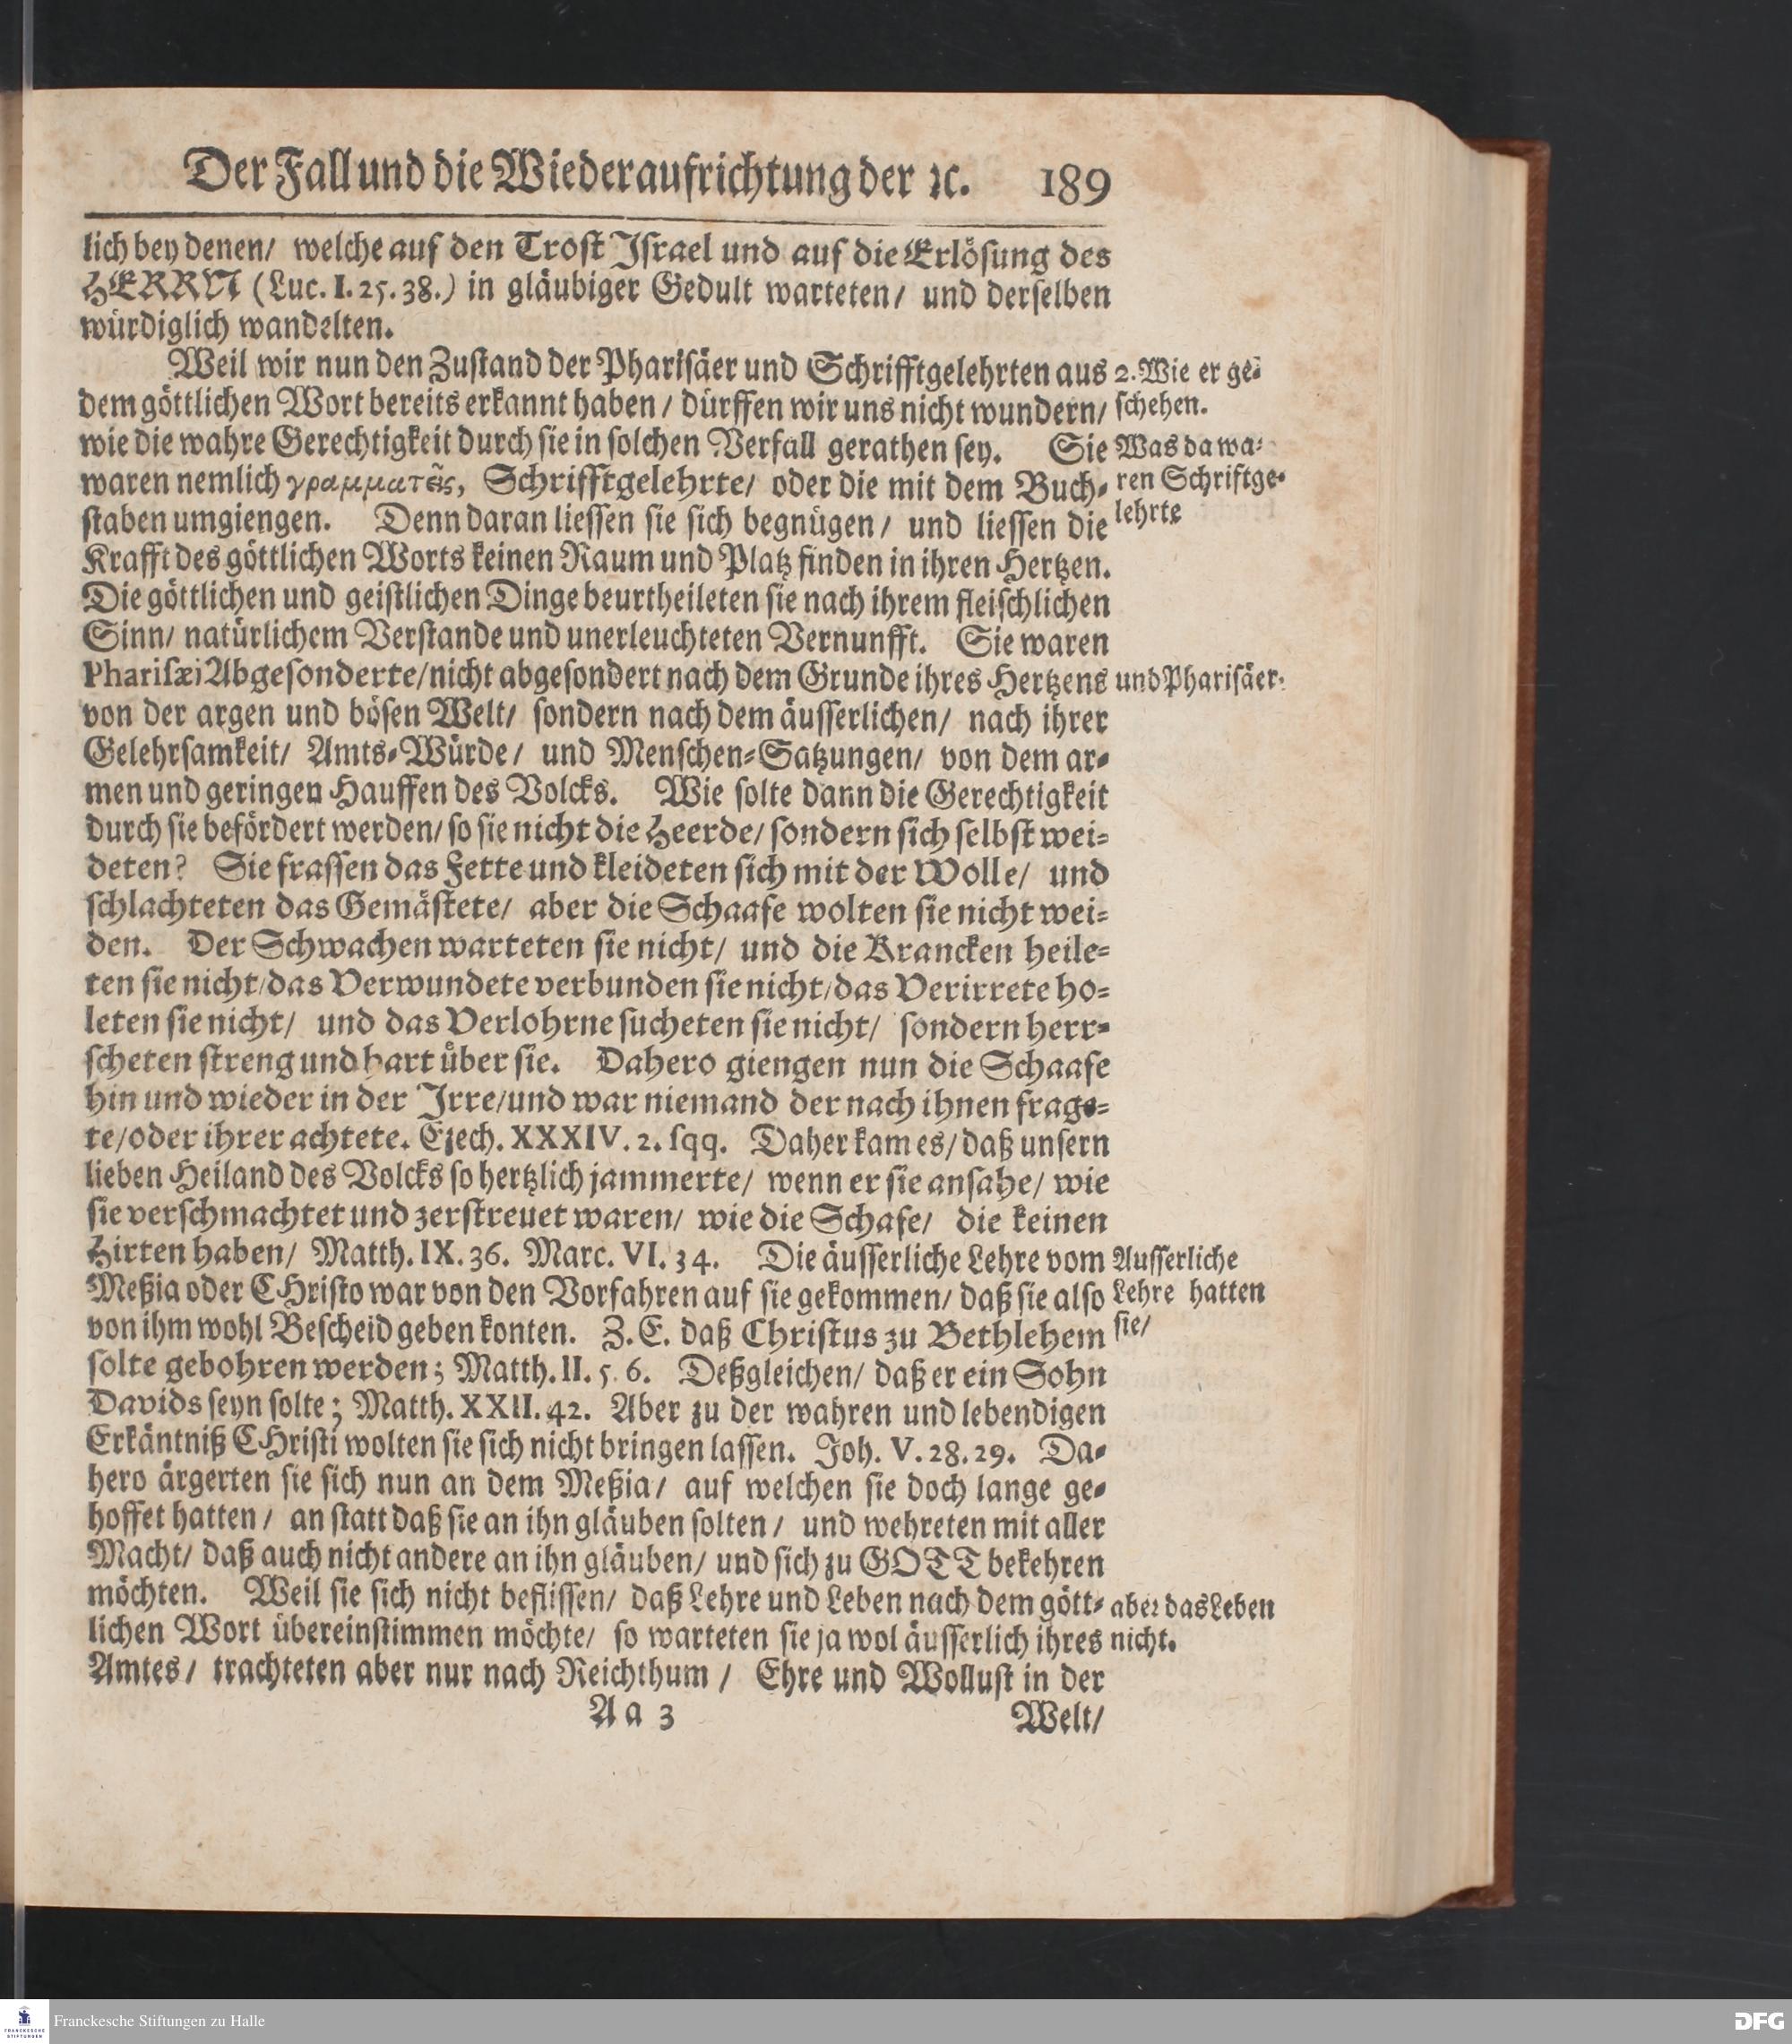 Der Fall und die Wiederaufrichtung der ꝛc. 189
lich bey denen/ welche auf den Trost Israel und auf die Erlösung des
HERRN (Luc. I. 25. 38.) in gläubiger Gedult warteten/ und derselben
würdiglich wandelten.
Weil wir nun den Zustand der Pharisäer und Schrifftgelehrten aus
dem göttlichen Wort bereits erkannt haben/ dürffen wir uns nicht wundern/
wie die wahre Gerechtigkeit durch sie in solchen Verfall gerathen sey. Sie
waren nemlich γραμματεῖς, Schrifftgelehrte/ oder die mit dem Buch-
staben umgiengen. Denn daran liessen sie sich begnügen/ und liessen die
Krafft des göttlichen Worts keinen Raum und Platz finden in ihren Hertzen.
Die göttlichen und geistlichen Dinge beurtheileten sie nach ihrem fleischlichen
Sinn/ natürlichem Verstande und unerleuchteten Vernunfft. Sie waren
Pharisæi Abgesonderte/ nicht abgesondert nach dem Grunde ihres Hertzens
von der argen und bösen Welt/ sondern nach dem äusserlichen/ nach ihrer
Gelehrsamkeit/ Amts-Würde/ und Menschen-Satzungen/ von dem ar-
men und geringen Hauffen des Volcks. Wie solte dann die Gerechtigkeit
durch sie befördert werden/ so sie nicht die Heerde/ sondern sich selbst wei-
deten? Sie frassen das Fette und kleideten sich mit der Wolle/ und
schlachteten das Gemästete/ aber die Schaafe wolten sie nicht wei-
den. Der Schwachen warteten sie nicht/ und die Krancken heile-
ten sie nicht/ das Verwundete verbunden sie nicht/ das Verirrete ho-
leten sie nicht/ und das Verlohrne sucheten sie nicht/ sondern herr-
scheten streng und hart über sie. Dahero giengen nun die Schaafe
hin und wieder in der Irre/ und war niemand der nach ihnen frage-
te/ oder ihrer achtete. Ezech. XXXIV. 2. sqq. Daher kam es/ daß unsern
lieben Heiland des Volcks so hertzlich jammerte/ wenn er sie ansahe/ wie
sie verschmachtet und zerstreuet waren/ wie die Schafe/ die keinen
Hirten haben/ Matth. IX. 36. Marc. VI. 34. Die äusserliche Lehre vom
Meßia oder CHristo war von den Vorfahren auf sie gekommen/ daß sie also
von ihm wohl Bescheid geben konten. Z. E. daß Christus zu Bethlehem
solte gebohren werden; Matth. II. 5. 6. Deßgleichen/ daß er ein Sohn
Davids seyn solte; Matth. XXII. 42. Aber zu der wahren und lebendigen
Erkäntniß CHristi wolten sie sich nicht bringen lassen. Joh. V. 28. 29. Da-
hero ärgerten sie sich nun an dem Meßia/ auf welchen sie doch lange ge-
hoffet hatten/ an statt daß sie an ihn gläuben solten/ und wehreten mit aller
Macht/ daß auch nicht andere an ihn gläuben/ und sich zu GOTT bekehren
möchten. Weil sie sich nicht beflissen/ daß Lehre und Leben nach dem gött-
lichen Wort übereinstimmen möchte/ so warteten sie ja wol äusserlich ihres
Amtes/ trachteten aber nur nach Reichthum/ Ehre und Wollust in der
Aa 3 Welt/
2. Wie er ge-
schehen.
Was da wa-
ren Schriftge-
lehrte
und Pharisäer.
Ausserliche
Lehre hatten
sie/
aber das Leben
nicht.
FRANCKESCHE
STIFTUNGEN
Franckesche Stiftungen zu Halle
DFG